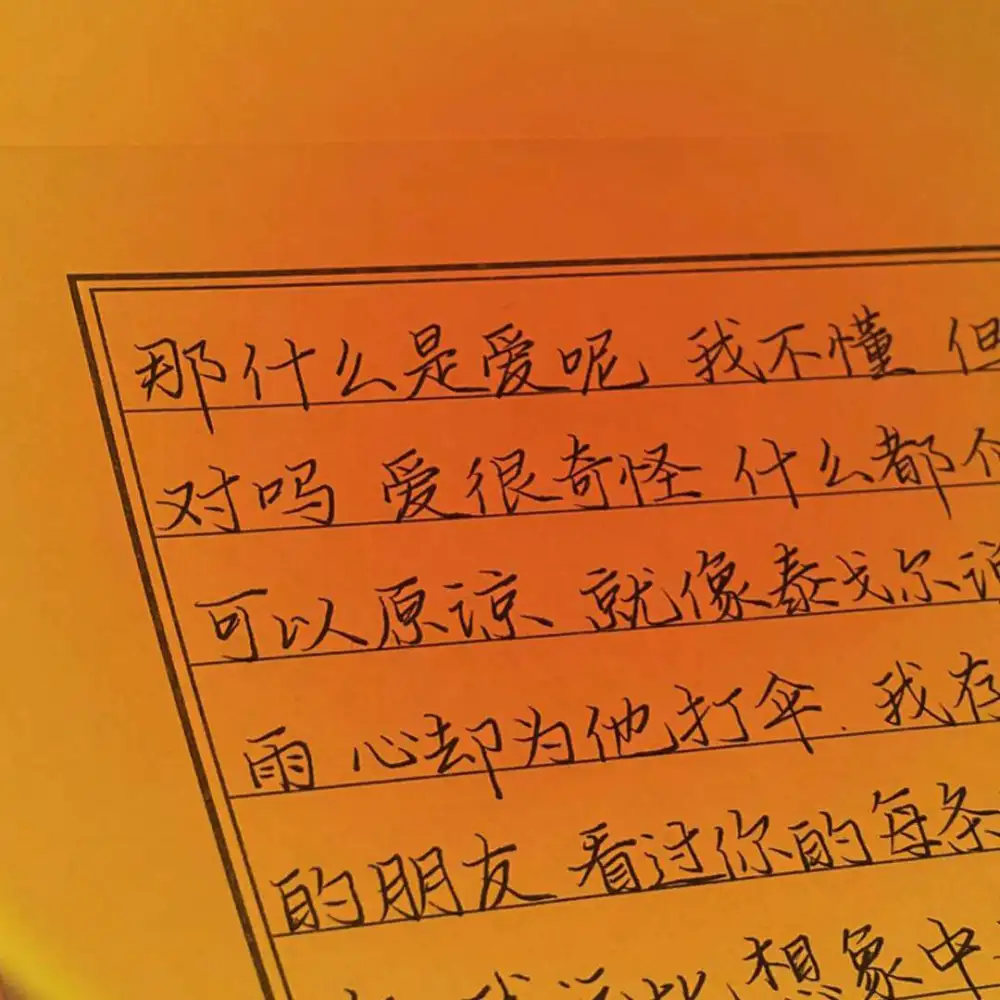 那什么是爱呢 我不懂 但
对吗 爱很奇怪 什么都
可以原谅 就像泰戈尔说
雨 心却为他打伞. 我存
的朋友 看过你的每条
想象中